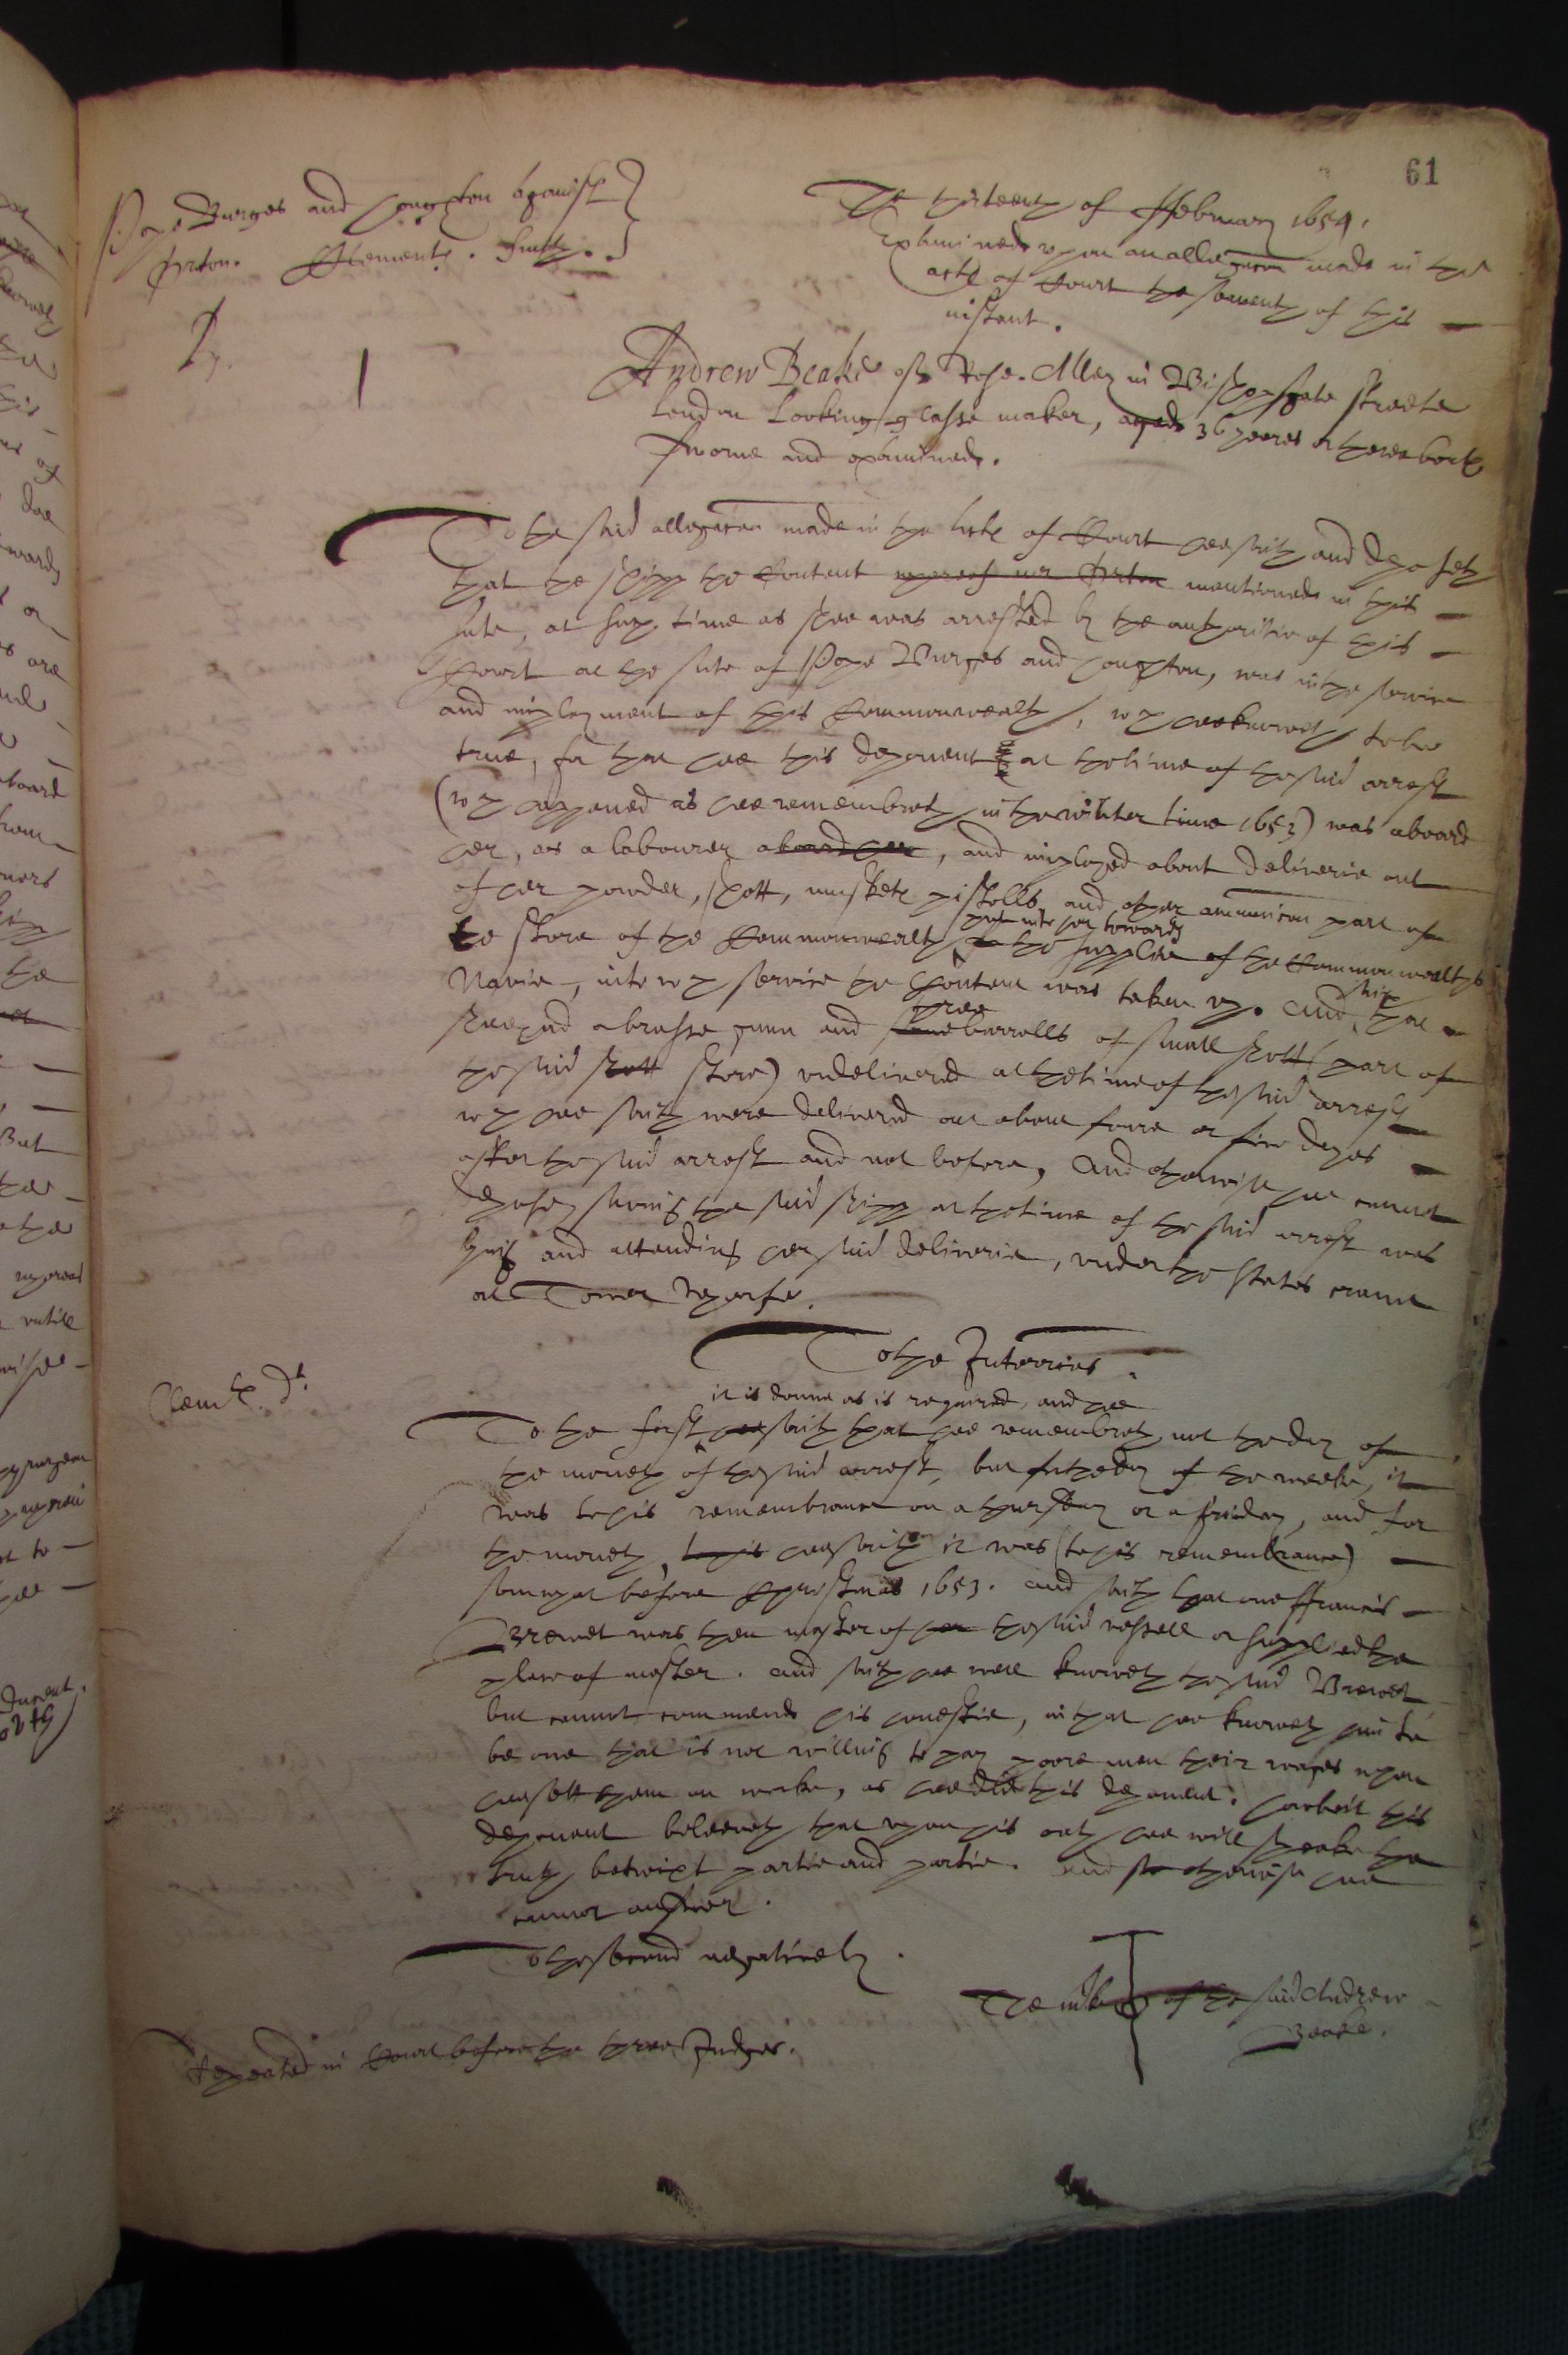 61
Page Burges and houghton against
Kirton. Clements. Smith.
The thirteenth of ffebruary 1654.
Examined upon an allegation made in the
acte of Court the seaventh of this
instant.
1
Andrew Beake of Rose Alley in Bishopsgate streete
London Looking-glasse maker, aged 36 yeeres or thereabouts
sworne and examined.
To the said allegation made in the Acte of Court hee saith and deposeth
that the shipp the Content mentioned in this
suite, at such time as shee was arrested by the authoritie of this
Court at the suite of Page Burges and houghton, was in the service
and imployment of this Commonwealth, wch hee knoweth to be
true, for that hee this deponent at the time of the said arrest
(wch happened as hee remembreth in the winter time 1653) was aboard
her, as a labourer aboard her, and imployed about deliverie out
of her powder, shott, musketts pistolls, and other ammunicon part of
the store of the Commonwealth put into her towards the supplie of the Commonwealths
Navie, into wch service the Content was taken up. And saith that
shee had a brasse gunn and three barrolls of small shott (part of
the said shott store) undelivered at the time of the said arrest
wch hee saith were delivered out about foure or five dayes
after the said arrest and not before, And otherwise hee cannot
depose, saving the said shipp at the time of the said arrest was
lying and attending her said deliverie, under the States crane
at Tower wharfe.
To the Interries.
Clem[ts] dt.
it is donne as is required, and hee
To the first hee saith that hee remembreth not the day of
the moneth of the said arrest, but for the day of the weeke, it
was to his remembrance on a thursday or a friday, and for
the moneth, to his hee saith it was (to his remembrance)
somewhat before Christmas 1653. and saith that one ffrancis
Brewet was then master of her the said vessell or supplied the
place of master. and saith hee well knoweth the said Brewet
but cannot commend his honestie, in that hee knoweth him to
be one that is not willing to pay poore men their wages upon
hee sett them on worke, as hee did this deponent. howbeit this
deponent beleeveth that upon his oath hee will speake the
truth betwixt partie and partie. And otherwise hee
cannot answer.
To the second negatively.
The marke of the said Andrew
Beake.
Repeated in Court before the three Judges.